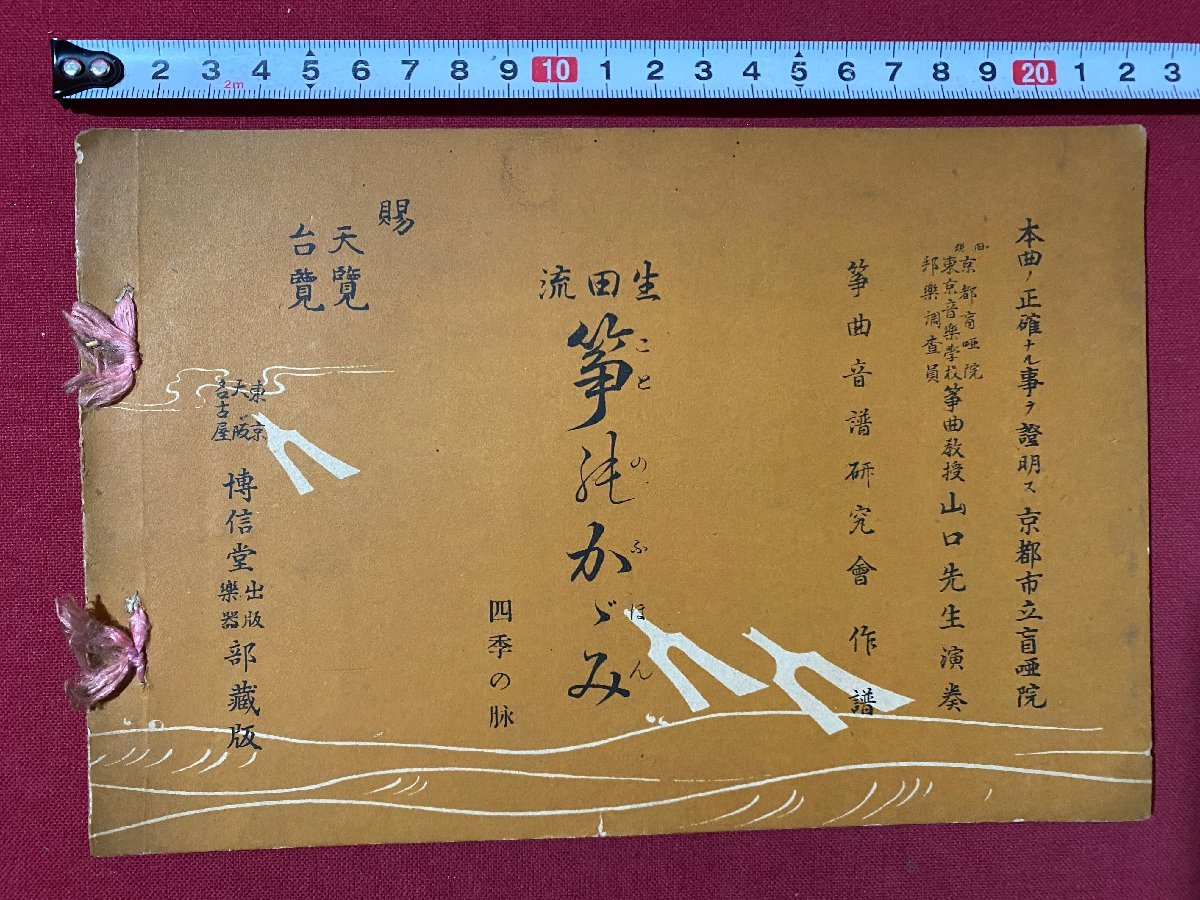 2 3 4 5 6 7 8 9 10 1 2 3 4 5 6 7 8 9 20 1 2 3
2m
本曲ノ正確ナル事ヲ證明ス 京都市立盲唖院
旧京都盲唖院
現東京音楽學校箏曲教授 山口先生演奏
邦樂調査員
箏曲音譜研究會作譜
生田流
箏のかゞみ
ことのふほん
四季の脉
賜
天覽
台覽
東京
大阪
名古屋
博信堂出版樂器部藏版